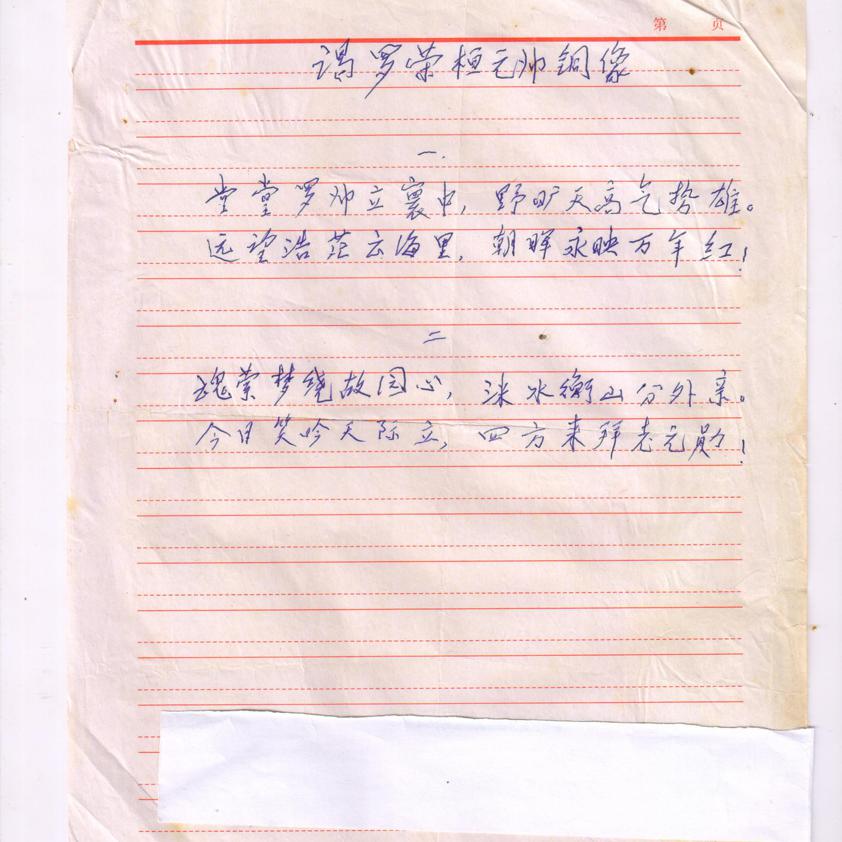 第 页
谒罗荣桓元帅铜像
一.
堂堂罗帅立寰中，野旷天高气势雄。
远望浩茫云海里，朝晖永映万年红！
二
魂萦梦绕故园心，洣水衡山分外亲。
今日笑吟天际立，四方来拜老元勋！